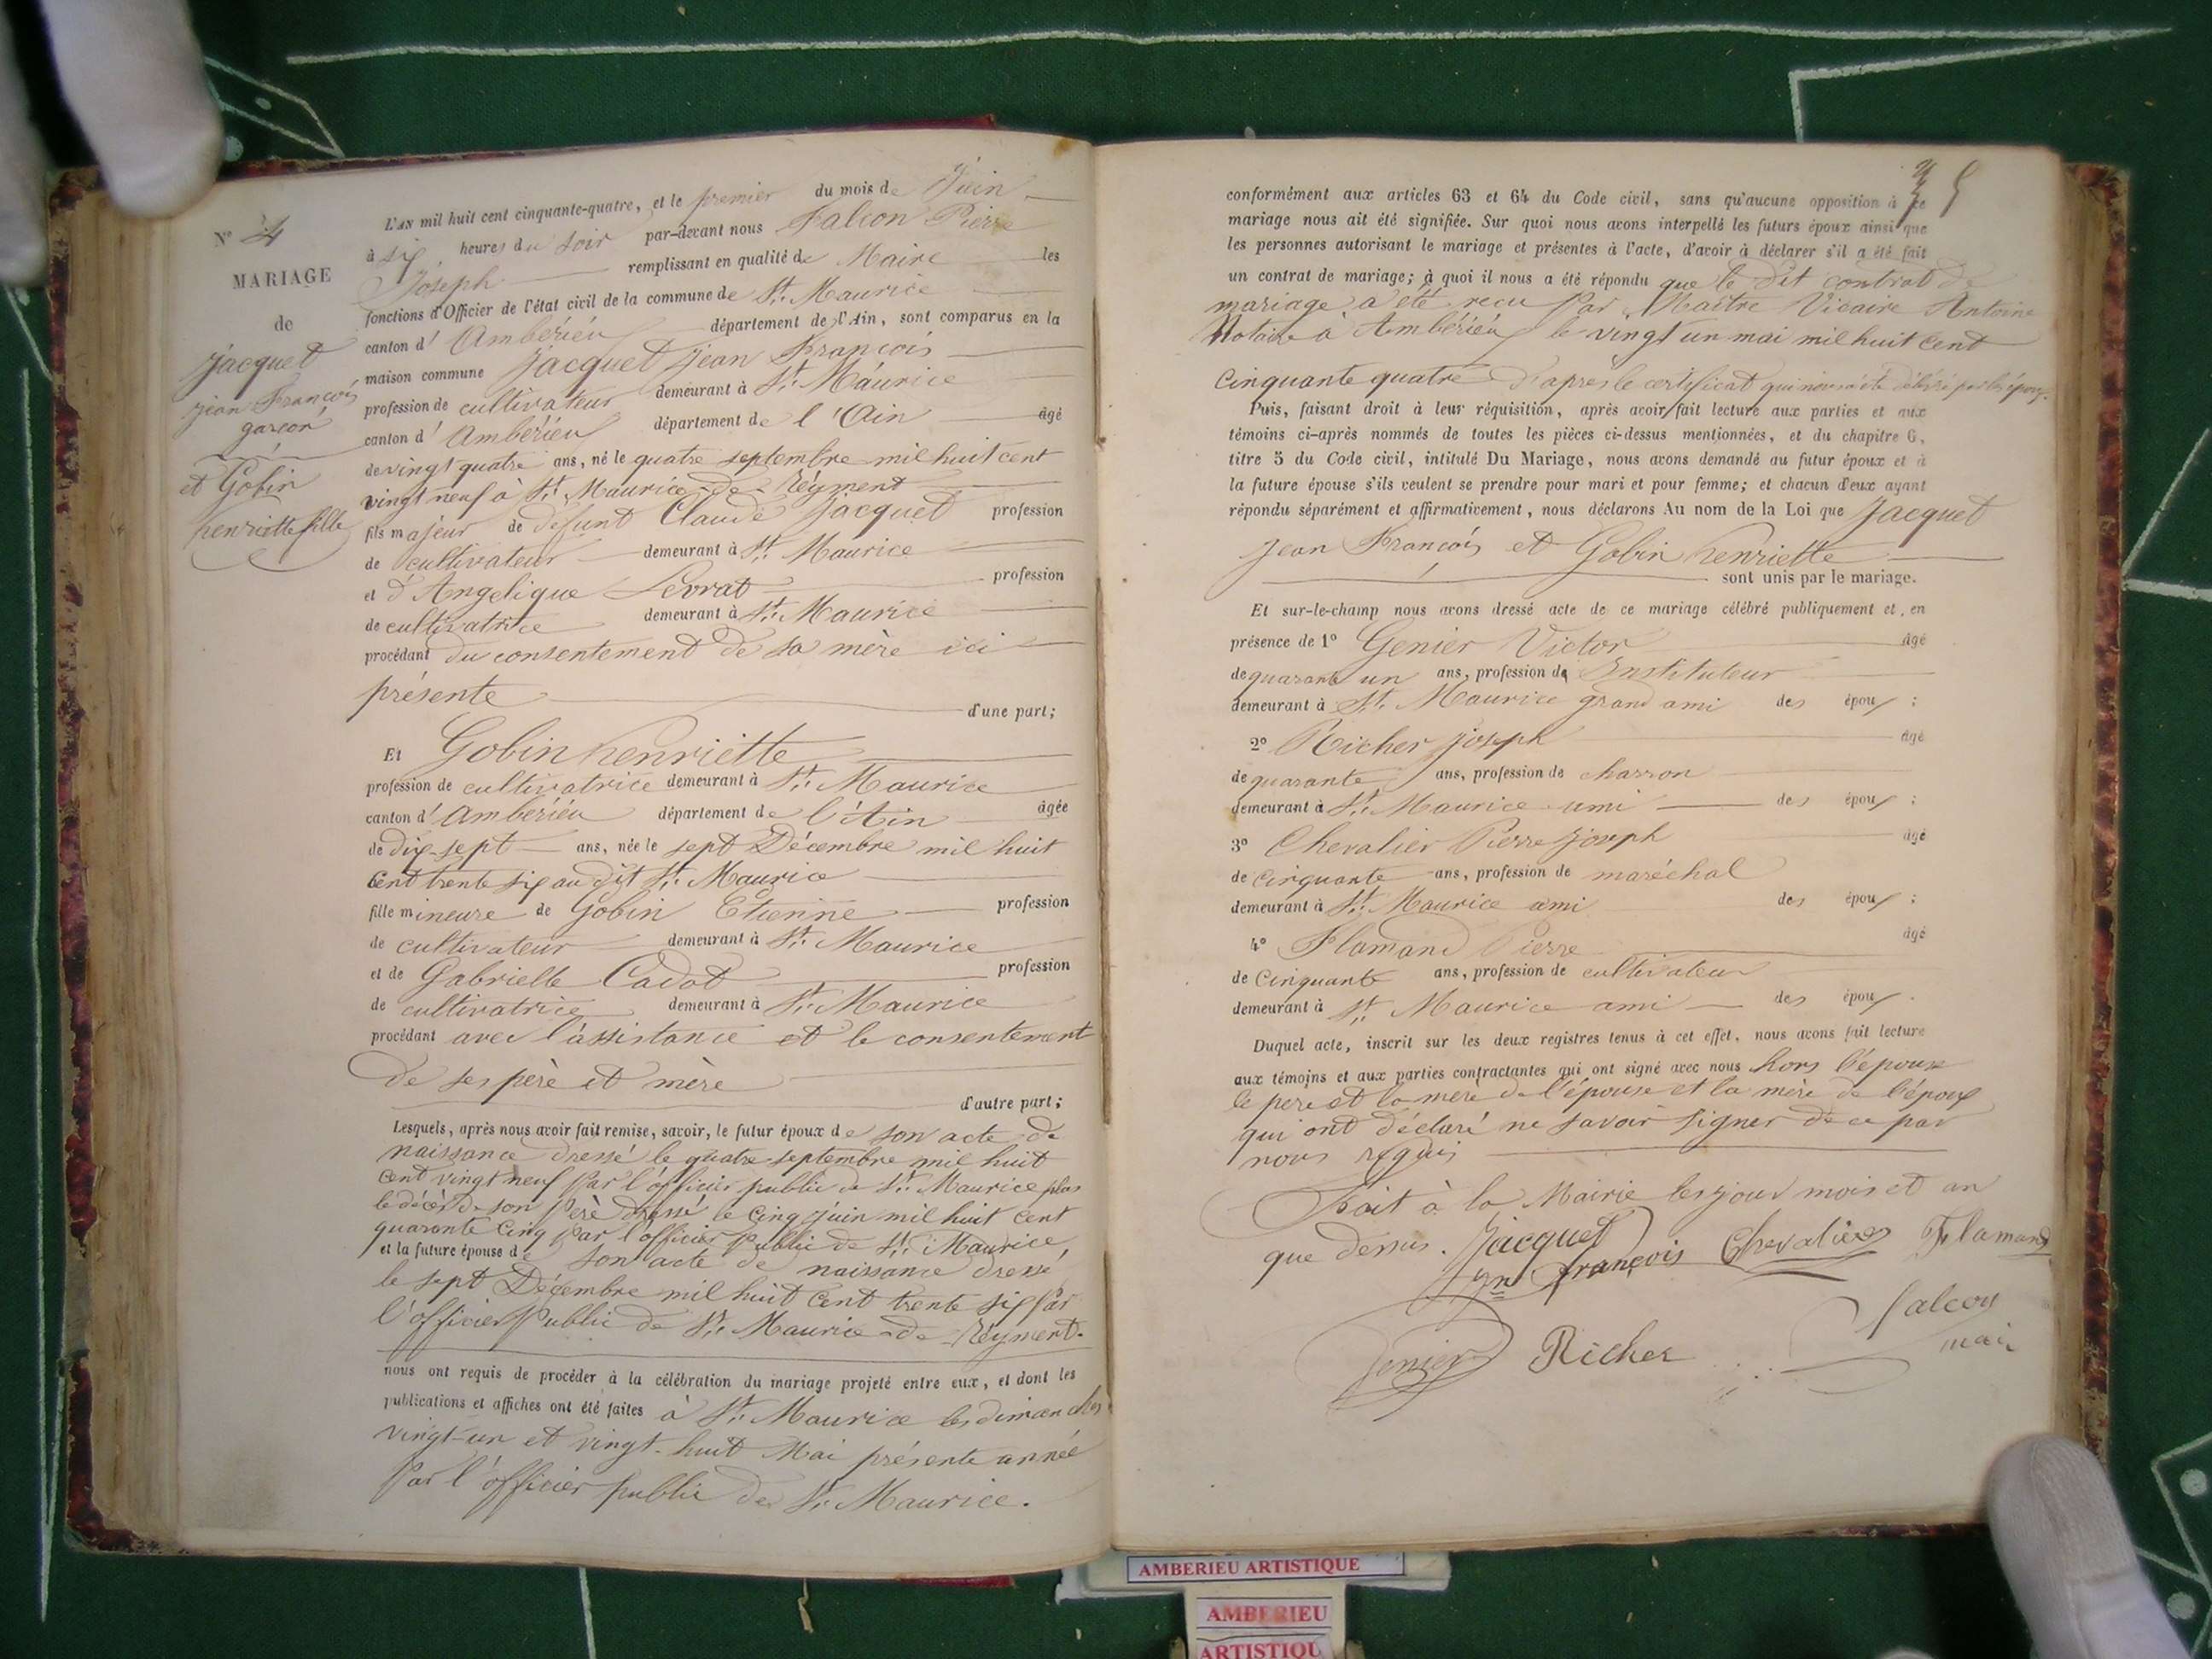 N° 4
MARIAGE
de
Jacquet
Jean François
garçon
et Gobin
henriette fille
L'AN mil huit cent cinquante-quatre, et le premier du mois de Juin
à six heures du soir par-devant nous Falcon Pierre
Joseph remplissant en qualité de Maire les
fonctions d'Officier de l'état civil de la commune de St. Maurice
canton d' Ambérieu département de l'Ain, sont comparus en la
maison commune Jacquet Jean François
profession de cultivateur demeurant à St. Maurice
canton d' Ambérieu département de l'Ain âgé
de vingt quatre ans, né le quatre septembre mil huit cent
vingt neuf à St. Maurice-de-Réyment
fils majeur de défunt Claude Jacquet profession
de cultivateur demeurant à St. Maurice
et d'Angelique Levrat profession
de cultivatrice demeurant à St. Maurice
procédant du consentement de sa mère ici
présente
d'une part;
Et Gobin henriette
profession de cultivatrice demeurant à St. Maurice
canton d' Ambérieu département de l'Ain âgée
de dix-sept ans, née le sept Décembre mil huit
Cent trente six au dit St. Maurice
fille mineure de Gobin Etienne profession
de cultivateur demeurant à St. Maurice
et de Gabrielle Cadot profession
de cultivatrice demeurant à St. Maurice
procédant avec l'assistance et le consentement
de ses père et mère
d'autre part;
Lesquels, après nous avoir fait remise, savoir, le futur époux de son acte de
naissance dressé le quatre septembre mil huit
cent vingt neuf Par l'officier public de St. Maurice plus
le décès de son Père dressé le Cinq juin mil huit cent
quarante Cinq Par l'officier Public de St. Maurice,
et la future épouse de son acte de naissance dressé
le sept Décembre mil huit Cent trente six Par
l'officier Public de St. Maurice-de-Réyment.
nous ont requis de procéder à la célébration du mariage projeté entre eux, et dont les
publications et affiches ont été faites à St. Maurice les dimanches
vingt-un et vingt-huit Mai présente année
Par l'officier public de St. Maurice.
conformément aux articles 63 et 64 du Code civil, sans qu'aucune opposition à ce
mariage nous ait été signifiée. Sur quoi nous avons interpellé les futurs époux ainsi que
les personnes autorisant le mariage et présentes à l'acte, d'avoir à déclarer s'il a été fait
un contrat de mariage; à quoi il nous a été répondu que le dit contrat de
mariage a été reçu Par Maître Vicaire Antoine
Notaire à Ambérieu le vingt un mai mil huit Cent
Cinquante quatre d'après le certificat qui nous a été délivré par les époux.
Puis, faisant droit à leur réquisition, après avoir fait lecture aux parties et aux
témoins ci-après nommés de toutes les pièces ci-dessus mentionnées, et du chapitre 6,
titre 5 du Code civil, intitulé Du Mariage, nous avons demandé au futur époux et à
la future épouse s'ils veulent se prendre pour mari et pour femme; et chacun d'eux ayant
répondu séparément et affirmativement, nous déclarons Au nom de la Loi que Jacquet
Jean François et Gobin henriette
sont unis par le mariage.
Et sur-le-champ nous avons dressé acte de ce mariage célébré publiquement et, en
présence de 1° Genier Victor âgé
de quarante un ans, profession de Instituteur
demeurant à St. Maurice grand ami des époux;
2° Richer Joseph âgé
de quarante ans, profession de charron
demeurant à St. Maurice ami des époux;
3° Chevalier Pierre Joseph âgé
de Cinquante ans, profession de maréchal
demeurant à St. Maurice ami des époux;
4° Flamand Pierre âgé
de Cinquante ans, profession de cultivateur
demeurant à St. Maurice ami des époux.
Duquel acte, inscrit sur les deux registres tenus à cet effet, nous avons fait lecture
aux témoins et aux parties contractantes qui ont signé avec nous hors l'épouse
le pere et la mere de l'épouse et la mère de l'époux
qui ont déclaré ne savoir signer de ce par
nous réquis
Fait à la Mairie les jour mois et an
que dessus. Jacquet Chevalier Flamand
Jn François
Genier Richer Falcon
maire
AMBERIEU ARTISTIQUE
AMBERIEU
ARTISTIQU